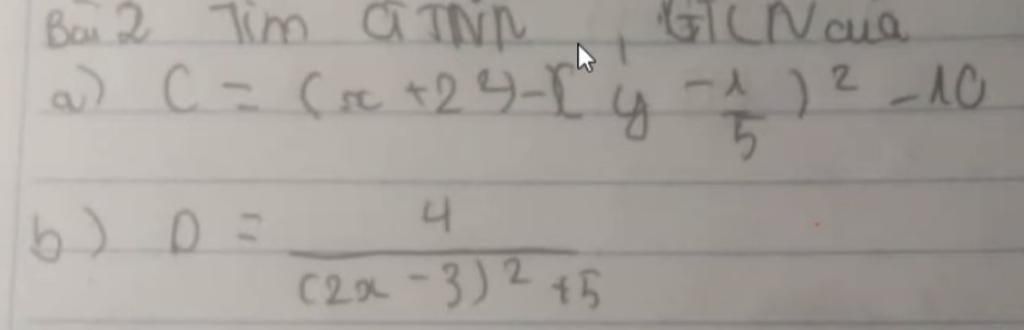 Bài 2 Tìm GTNN, GTLN của
a) C = (x + 2)² - ( y - 1/5 )² - 10
b) D = 4 / (2x - 3)² + 5